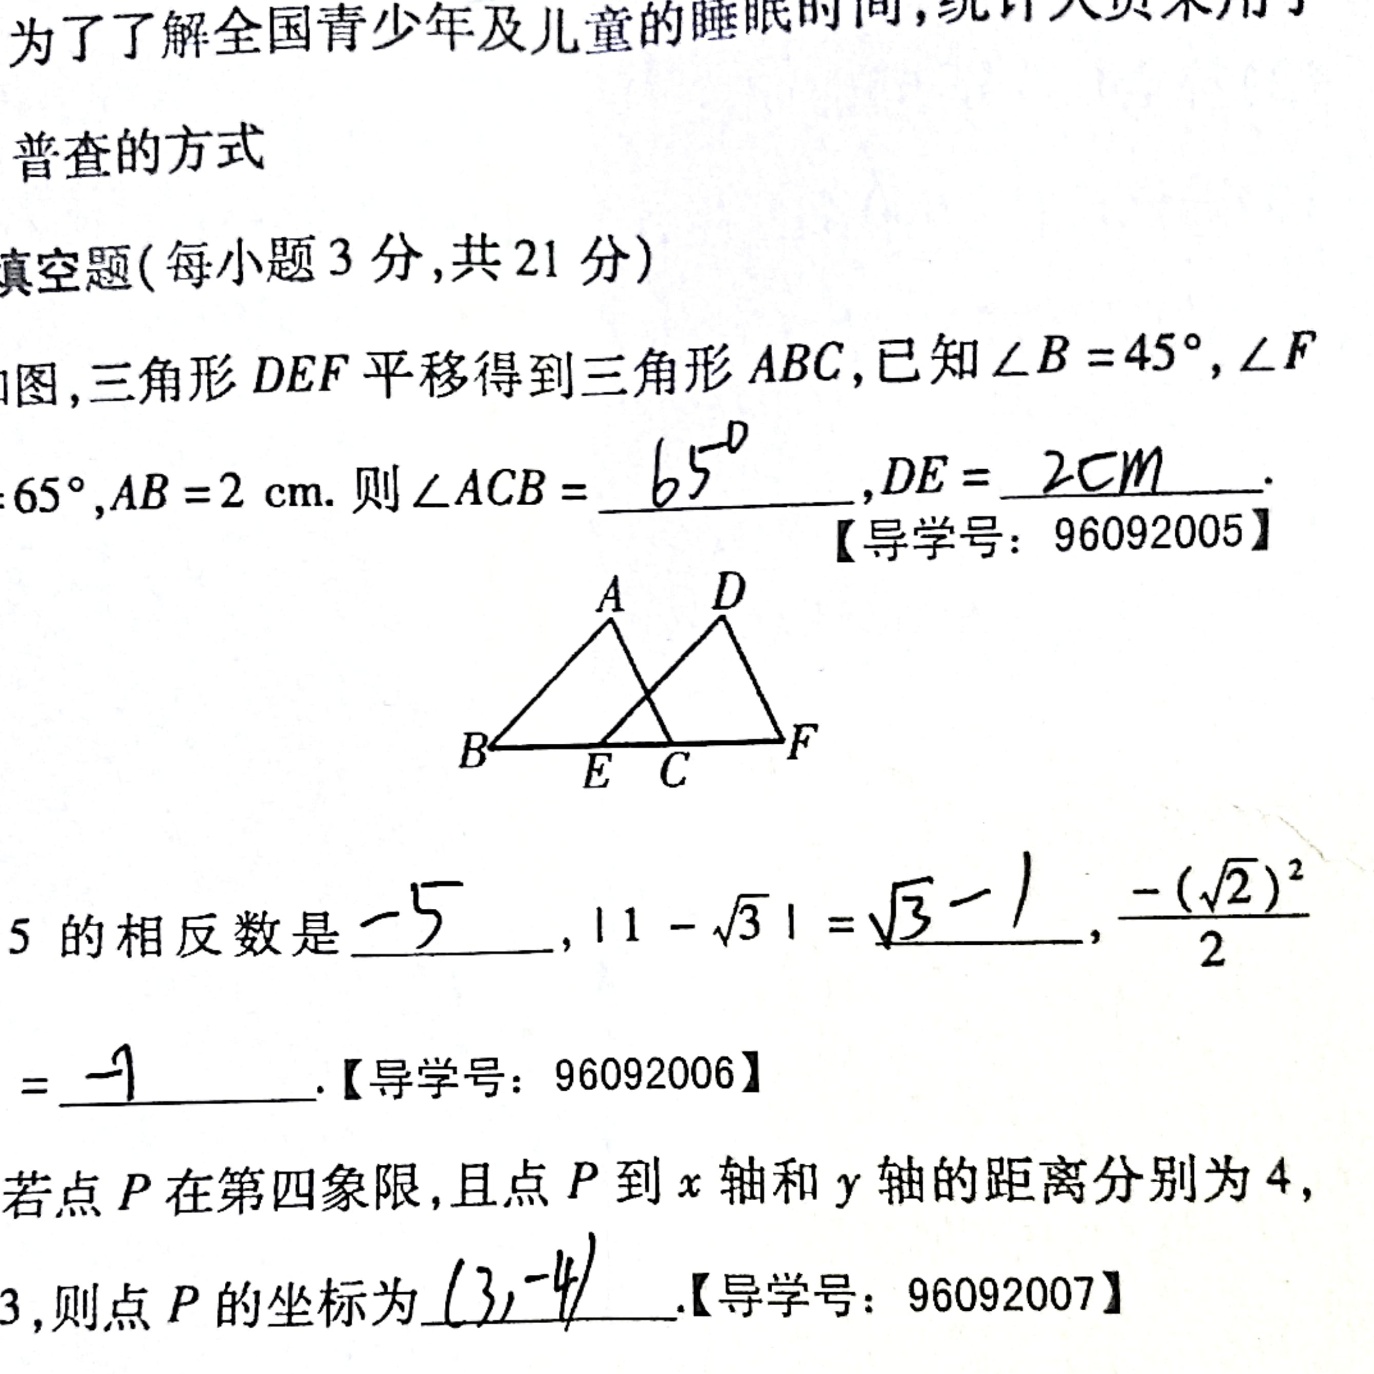 为了了解全国青少年及儿童的睡眠时间,统计人员采用了
普查的方式
填空题(每小题3分,共21分)
如图,三角形DEF平移得到三角形ABC,已知∠B=45°,∠F
=65°,AB=2 cm.则∠ACB=65°,DE=2cm.
【导学号:96092005】
A D
B E C F
5的相反数是-5,|1-√3|=√3-1,-(√2)²/2
=-1.【导学号:96092006】
若点P在第四象限,且点P到x轴和y轴的距离分别为4,
3,则点P的坐标为(3,-4).【导学号:96092007】